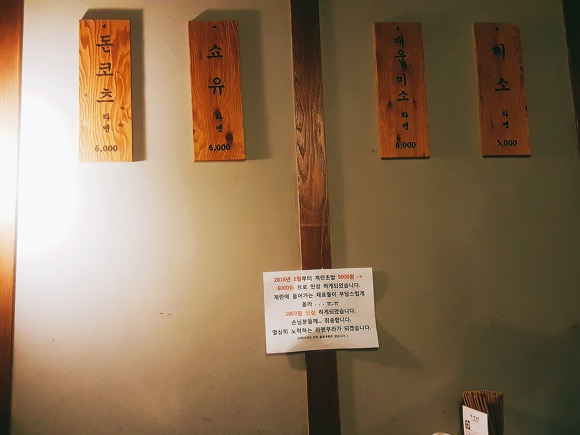 돈코츠 라멘
6,000
쇼유 라멘
6,000
매운미소 라멘
6,000
미소 라멘
5,000
2018년 1월부터 계란초밥 5000원 ->
6000원 으로 인상 하게되었습니다.
계란에 들어가는 재료들이 부담스럽게
올라 . . . ㅠ-ㅠ
1000원 인상 하게되었습니다.
손님분들께... 죄송합니다.
열심히 노력하는 라멘무라가 되겠습니다.